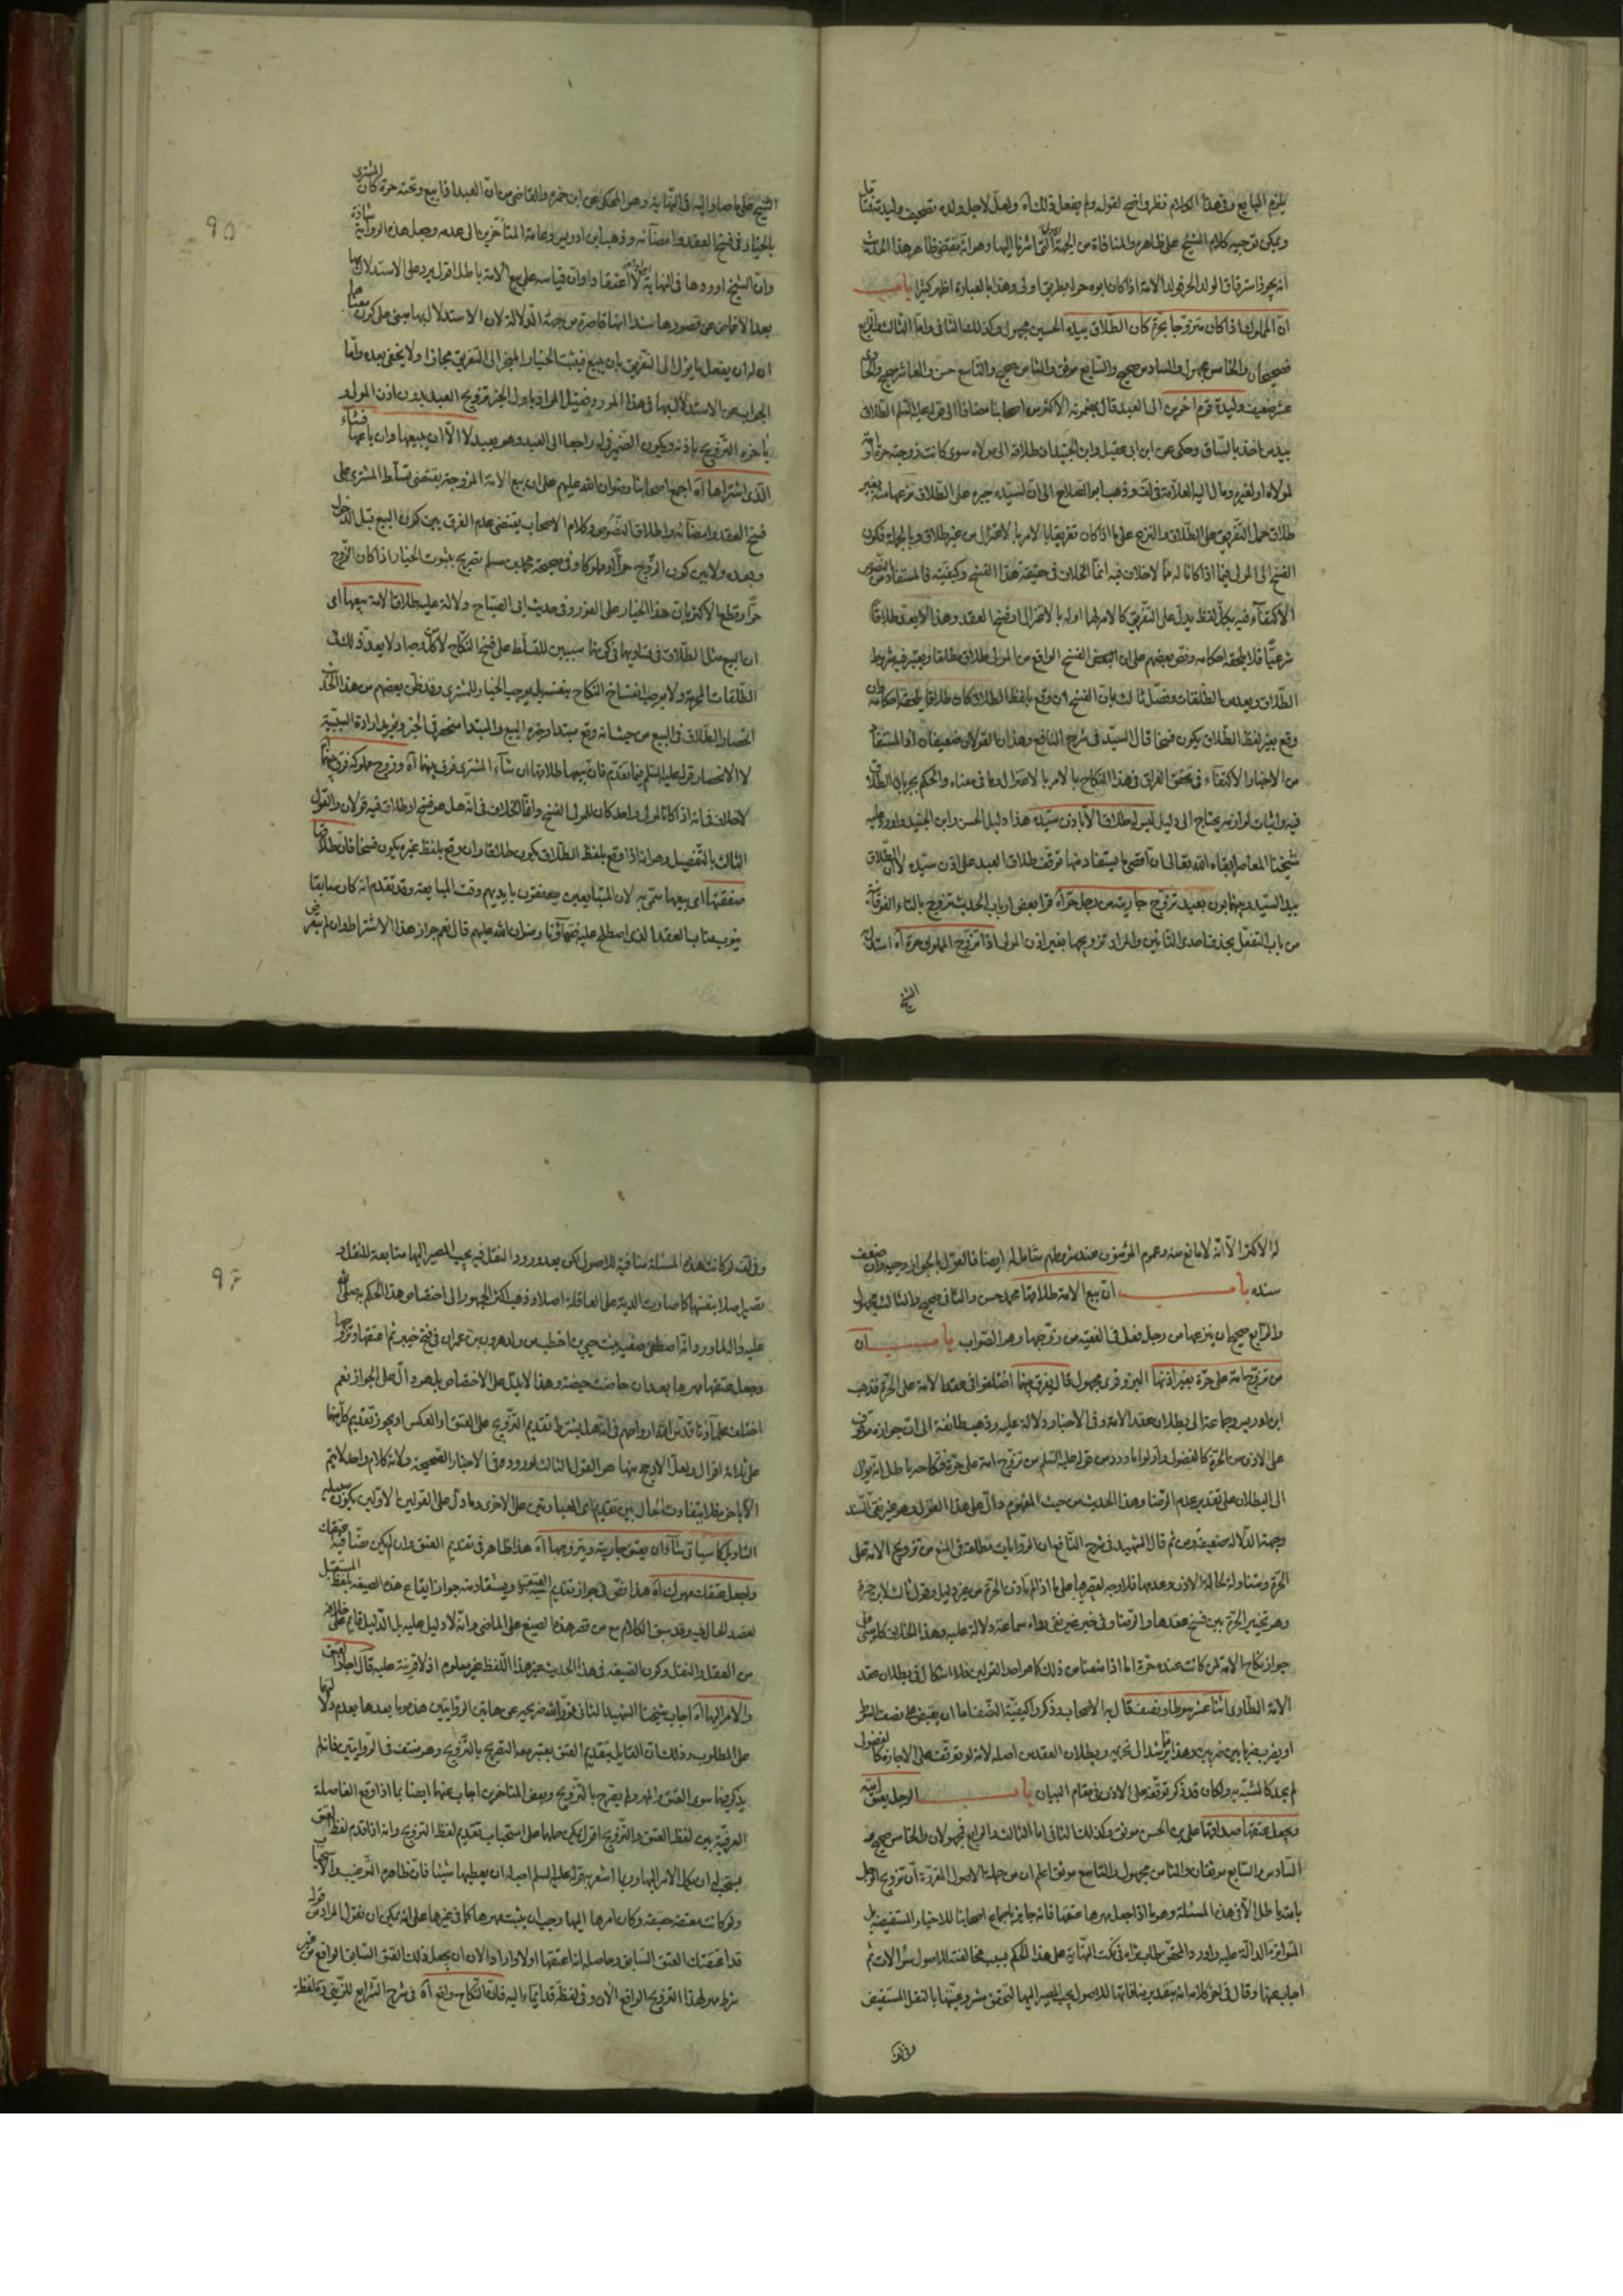 يلزم المبايع وفي هذا الكلام نظر واضح لقوله ولم يفعل ذلك آه ولعل لاجل ولده تصحيف وليد
ويمكن توجيه كلام الشيخ على ظاهره والمنافاة من الجهة التي اشرنا اليها وهو انه مقتضى ظاهر هذا الحديث
انه يجوز استرقاق الولد الحر فولد الامة اذا كان ابوه حرا بطريق اولى وهذا بالعبارة اظهر كثيرا باب
ان المملوك اذا كان متزوجا بحرة كان الطلاق بيده الحسين مجهول وكذلك الثاني واما الثالث والرابع
فصحيحان والخامس مجهول والسادس صحيح والسابع موثق والثامن صحيح والتاسع حسن والعاشر صحيح والحادي
عشر ضعيف وليدة قوم آخرين الى العبد قال بمضمونه الاكثر من اصحابنا مضافا الى قوله عليه السلم الطلاق
بيد من اخذ بالساق وحكى عن ابن ابي عقيل وابن الجنيد ان طلاقه الى مولاه سوى كانت زوجته حرة او امة
لمولاه او لغيره ومال اليه العلامة في لف وذهب ابو الصلاح الى ان لسيده جبره على الطلاق نزعها منه بغير
طلاق حمل التفريق على الطلاق والنزع على ما اذا كان تفريقا بالامر بالاعتزال من غير طلاق وبالجملة فكون
الفسخ الى المولى فيما اذا كانا له مما لا خلاف فيه انما الخلاف في حقيقة هذا الفسخ وكيفيته فالمستفاد من النصوص
الاكتفاء فيه بكل لفظ يدل على التفريق كالامر لهما او له بالاعتزال او فسخ العقد وهذا لا يعد طلاقا
شرعيا فلا يلحقه احكامه ونص بعضهم على ان الفسخ الواقع من المولى طلاق مطلقا ويعتبر فيه شروط
الطلاق ويعد من الطلقات وفصل ثالث بان الفسخ ان وقع بلفظ الطلاق كان طلاقا يلحقه احكامه وان
وقع بغير لفظ الطلاق يكون فسخا قال السيد في شرح النافع وهذان القولان ضعيفان اذ المستفاد
من الاخبار الاكتفاء في تحقق الفراق في هذا النكاح بالامر بالاعتزال وما في معناه والحكم بجريان الطلاق
فيه واثبات لوازمه يحتاج الى دليل ليس له طلاق الا باذن سيده هذا دليل الحسن وابن الجنيد واورد عليه
شيخنا المعاصر ابقاه الله تعالى ان اقصى ما يستفاد منها توقف طلاق العبد على اذن سيده لا ان الطلاق
بيد السيد وبينهما بون بعيد تزوج جاريته من رجل حر آه قرأ بعض ارباب الحديث تزوج بالتاء الفوقانية
من باب التفعل بحذف احدى التائين والمراد تزويجها بغير اذن المولى اذا تزوج المملوك حرة آه استدل
الشيخ
الشيخ على ما صار اليه في النهاية وهو المحكي عن ابن حمزة والقاضي من ان العبد اذا بيع وتحته حرة كان المشتري
بالخيار في فسخ العقد وامضائه وذهب ابن ادريس وعامة المتاخرين الى عدمه وجعل هذه الرواية شاذة
وان الشيخ اوردها في النهاية ايرادا لا اعتقادا وان قياسه على بيع الامة باطل اقول يرد على الاستدلال بها
بعد الاغماض عن قصورها سندا انها قاصرة من جهة الدلالة لان الاستدلال بها مبني على كون معناها
ان له ان يفعل ما يؤل الى التفريق بان يبيع فيثبت الخيار المنجر الى التفريق مجازا ولا يخفى بعده واما
الجواب عن الاستدلال بها في هذا المورد فقيل المراد باول الخبر تزويج العبد بدون اذن المولى و
بآخره التزويج باذنه ويكون الضمير في له راجعا الى العبد وهو بعيد لا الا ان يبيعها وان باعها فشاء
الذي اشتراها آه اجمع اصحابنا رضوان الله عليهم على ان بيع الامة المزوجة يقتضي تسلط المشتري على
فسخ العقد وامضائه واطلاق النصوص وكلام الاصحاب يقتضي عدم الفرق بين كون البيع قبل الدخول
وبعده ولا بين كون الزوج حرا او مملوكا وفي صحيحة محمد بن مسلم تصريح بثبوت الخيار اذا كان الزوج
حرا وقطع الاكثر بان هذا الخيار على الفور وفي حديث ابي الصباح دلالة عليه طلاق الامة بيعها اي
ان البيع مثل الطلاق في تساويهما في كونهما سببين للتسلط على فسخ النكاح لا كل وجه اذ لا يعد ذلك في
الطلقات المحرمة ولا يوجب انفساخ النكاح بنفسه بل يوجب الخيار للمشتري وقد ظن بعضهم من هذا الحديث
انحصار الطلاق في البيع من حيث انه وقع مبتدا وخبره البيع والمبتدا منحصر في الخبر ويؤيد ارادة السببية
لا الانحصار قوله عليه السلم فيما تقدم فان بيعها طلاقها ان شاء المشتري فرق بينهما آه وزوج مملوكه فرق بينهما
لا خلاف في انه اذا كانا لمولى واحد كان للمولى الفسخ وانما الخلاف في انه هل هو فسخ او طلاق فيه قولان والقول
الثالث بالتفصيل وهو انه اذا وقع بلفظ الطلاق يكون طلاقا وان وقع بلفظ غيره يكون فسخا فان طلاقها
صفقتها اي بيعها سمي به لان المتبايعين يصفقون بايديهم وقت المبايعة وقد تقدم انه كان سابقا
ينوب مناب العقد الذي اصطلح عليه فقهاؤنا رضوان الله عليهم قال نعم جواز هذا الاشتراط وان لم يتعرض
له الاكثر الا انه لا مانع منه وعموم المؤمنون عند شروطهم شامل له ايضا فالقول بالجواز وجيه وان ضعف
سنده باب ان بيع الامة طلاقها محمد حسن والثاني صحيح والثالث مجهول
والرابع صحيح ان ينزعها من رجل نقل في الفقيه من زوجها وهو الصواب باب ان
من تزوج امة على حرة بغير اذنها البزوفري مجهول قال يفرق بينهما اختلفوا في عقد الامة على الحرة فذهب
ابن ادريس وجماعة الى بطلان عقد الامة وفي الاخبار دلالة عليه وذهب طائفة الى ان جوازه موقوف
على الاذن من الحرة كالفضولي واولوا ما ورد من قوله عليه السلم من تزوج امة على حرة فنكاحه باطل انه يؤل
الى البطلان على تقدير عدم الرضا وهذا الحديث من حيث المفهوم دال على هذا القول وهو غير نقي السند
وجهة الدلالة ضعيفة ومن ثم قال الشهيد في شرح النافع ان الروايات مطلقة في المنع من تزويج الامة على
الحرة ومتناولة لحالة الاذن وعدمها فلا وجه لقصرها على ما اذا لم ياذن الحرة من غير دليل وقول ثالث لابن حمزة
وهو تخيير الحرة بين فسخ عقدها والرضا وفي خبر غير نقي رواه سماعة دلالة عليه وهذا الخلاف كله مبني على
جواز نكاح الامة لمن كانت عنده حرة اما اذا منعنا من ذلك كما هو احد القولين فلا اشكال في بطلان عقد
الامة الطاري اثنا عشر سوطا ونصف قال به الاصحاب وذكروا كيفية النصف اما ان يقبض على نصف السوط
او يضرب ضربا بين ضربين وهذا يرشد الى تحريمه وبطلان العقد من اصله لانه لو توقف على الاجازة كالفضولي
لم يحد كالمشبه به ولكان قد ذكر توقفه على الاذن في مقام البيان باب الرجل يعتق امته
ويجعل عتقها صداقها علي بن الحسن موثق وكذلك الثاني اما الثالث والرابع فمجهولان والخامس صحيح و
السادس والسابع موثقان والثامن مجهول والتاسع موثق اعلم ان من جملة الاصول المقررة ان تزويج الرجل
بامته باطل الا في هذه المسئلة وهو ما اذا جعل مهرها عتقها فانه جايز باجماع اصحابنا للاخبار المستفيضة بل
المتواترة الدالة عليه واورد المحقق طاب ثراه في نكت النهاية على هذا الحكم بسبب مخالفته للاصول سؤالات ثم
اجاب عنها وقال في آخر كلامه انه بتقدير منافاتها للاصول يجب المصير اليها لتحقق مشروعيتها بالنقل المستفيض
وفي لف
وفي لف لو كانت هذه المسئلة منافية للاصول لكن بعد ورود النقل فيه يجب المصير اليها متابعة للنقل و
تصير اصلا بنفسها كما صارت الدية على العاقلة اصلا وذهب اكثر الجمهور الى اختصاص هذا الحكم به صلى الله
عليه وآله لما ورد انه اصطفى صفية بنت حيي بن اخطب من ولد هرون بن عمران في فتح خيبر ثم اعتقها وتزوجها
وجعل عتقها مهرها بعد ان حاضت حيضة وهذا لا يدل على الاختصاص بل هو دال على الجواز نعم
اختلف علماؤنا قدس الله ارواحهم في انه هل يشترط تقديم التزويج على العتق او العكس او يجوز تقديم كل منهما
على ثلاثة اقوال ولعل الارجح منها هو القول الثالث لوروده في الاخبار الصحيحة ولانه كلام واحد لا يتم
الا باخره فلا يتفاوت الحال بين تقديم اي العبارتين على الاخرى وما دل على القولين الاولين يكون سبيله
التاويل كما سياتي شاء ان يعتق جاريته ويتزوجها آه هذا ظاهر في تقديم العتق وان لم يكن نصا فيه
واجعل عتقك مهرك آه هذا نص في جواز تقديم العتق ويستفاد منه جواز ايقاع هذه الصيغة بلفظ المستقبل
بقصد الحال فيه وقد سبق الكلام مع من قصر هذه الصيغ على الماضي وانه لا دليل عليه بل الدليل قائم على خلافه
من العقل والنقل وكون الصيغة في هذا الحديث غير هذا اللفظ غير معلوم اذ لا قرينة عليه قال اجاز العتق
والامر اليها آه اجاب شيخنا الشهيد الثاني نور الله ضريحه عن هاتين الروايتين هذه وما بعدها بعدم دلالتها
على المطلوب وذلك ان القايل بتقديم العتق يعتبر معه التصريح بالتزويج وهو منتف في الروايتين فانه لم
يذكر فيها سوى العتق والمهر ولم يصرح بالتزويج وبعض المتاخرين اجاب عنهما ايضا بما اذا وقع الفاصلة
العرفية بين لفظ العتق والتزويج اقول يمكن حملها على استحباب تقديم لفظ التزويج وانه اذا قدم لفظ العتق
يستحب له ان يكل الامر اليها وربما اشعر به قوله عليه السلم احب له ان يعطيها شيئا فان ظاهره الترغيب والا
ولو كانت معتقة حقيقة وكان امرها اليها وجب ان يثبت مهرها كما في غيرها على انه يمكن ان نقول المراد من قوله
قد اعتقتك العتق السابق وحاصله انه اعتقها اولا واراد الان ان يجعل ذلك العتق السابق الواقع من غير
شرط مهرا لهذا التزويج الواقع الآن وفي لفظة قد ايماء اليه فان النكاح واقع آه في شرح الشرايع